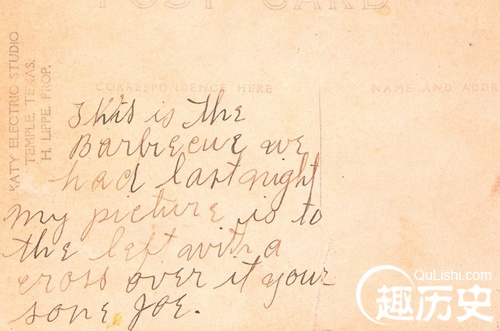 POST CARD
CORRESPONDENCE HERE
NAME AND ADDR
KATY ELECTRIC STUDIO
TEMPLE, TEXAS.
H. LIPPE, PROP.
This is the
Barbecue we
had last night
My picture is to
the left with a
cross over it your
sone, Joe.
QuLishi.com
趣历史